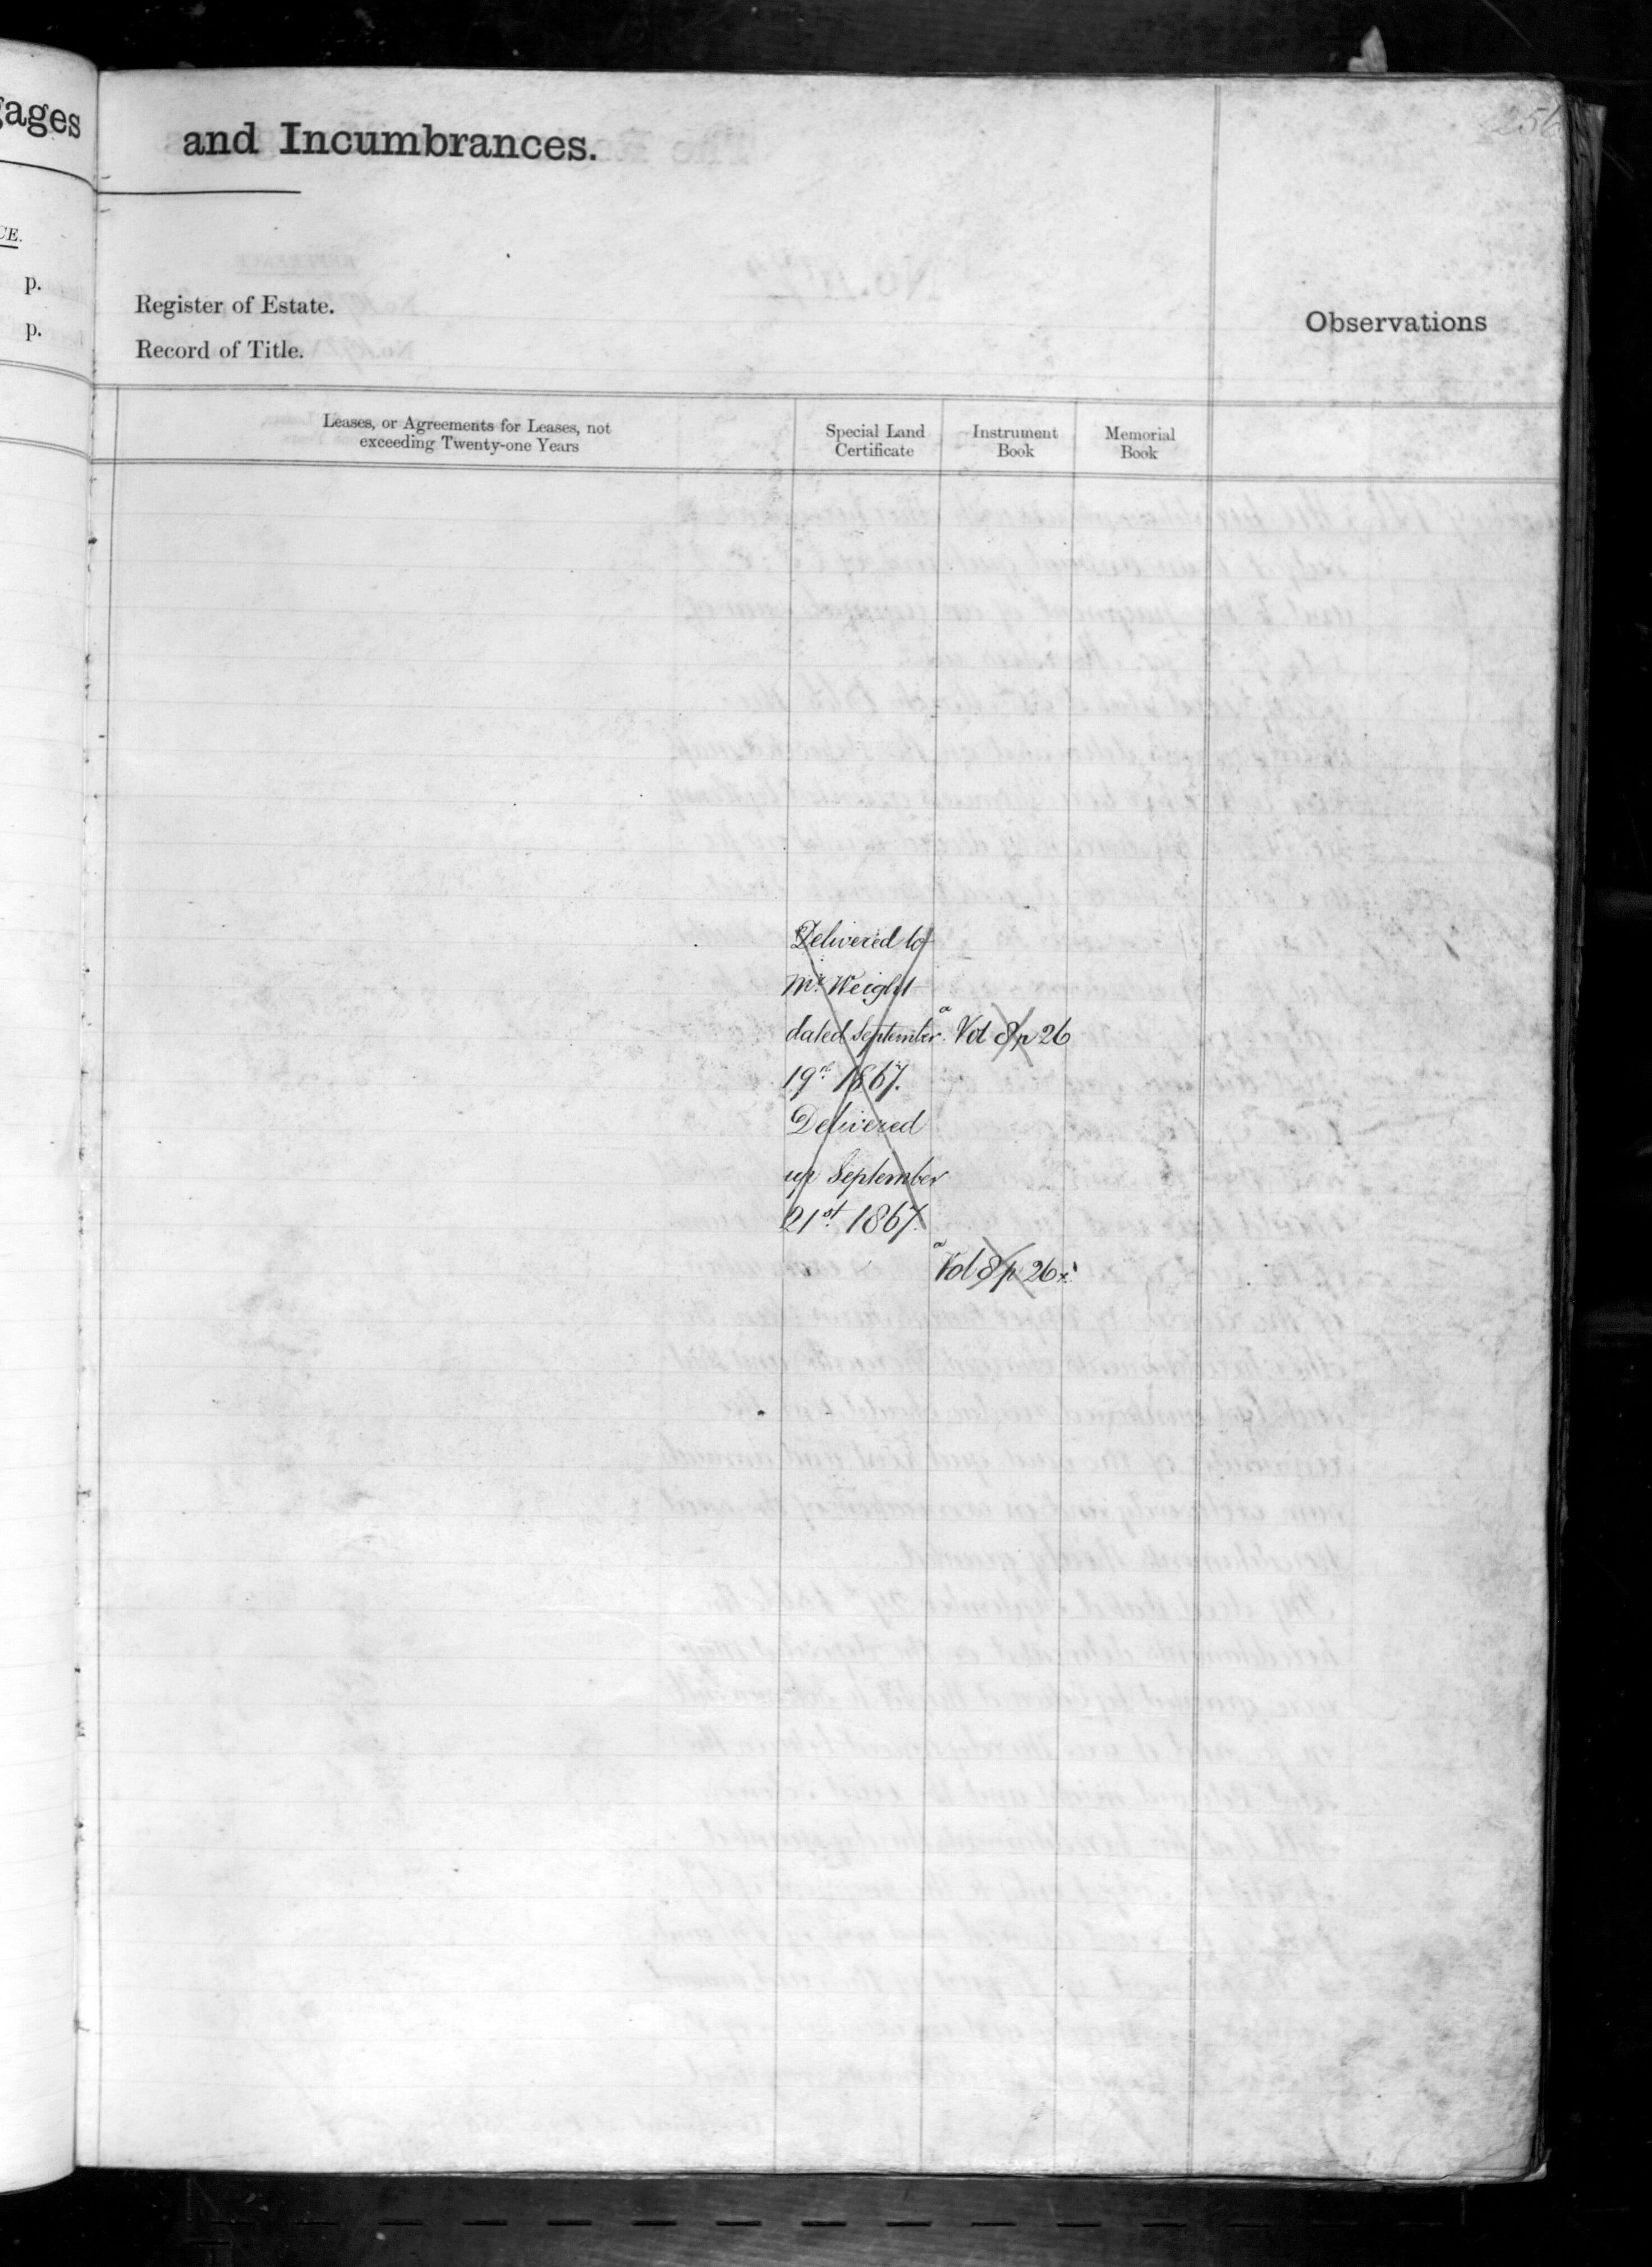 gages
and Incumbrances.
256
CE.
p.
Register of Estate.
p.
Record of Title.
Observations
Leases, or Agreements for Leases, not
exceeding Twenty-one Years
Special Land
Certificate
Instrument
Book
Memorial
Book
Delivered to
Mr. Weight
dated September
19th 1867.
Delivered
up September
21st 1867.
a Vol 8 p 26
a Vol 8 p 26x